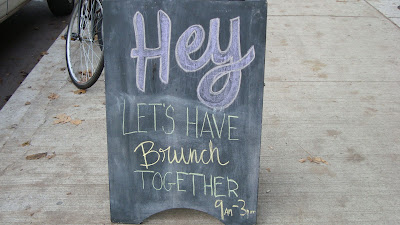 Hey
LET'S HAVE
Brunch
TOGETHER
9AM-3PM